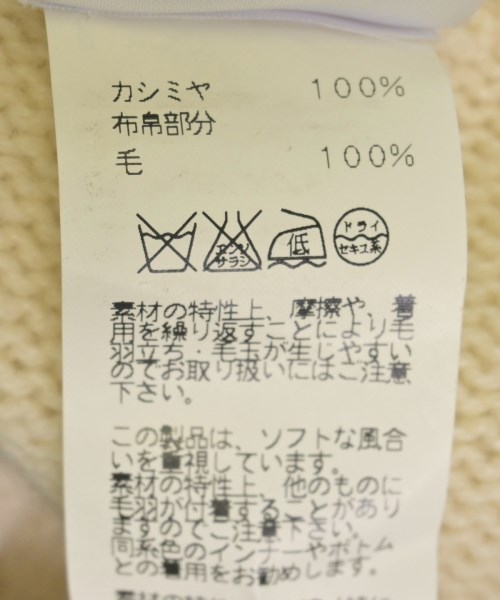 カシミヤ 100%
布帛部分
毛 100%
エンソ
サラシ
低
ドライ
セキユ系
素材の特性上、摩擦や、着
用を繰り返すことにより毛
羽立ち・毛玉が生じやすい
のでお取り扱いにはご注意
下さい。
この製品は、ソフトな風合
いを重視しています。
素材の特性上、他のものに
毛羽が付着することがあり
ますのでご注意下さい。
同系色のインナーやボトム
との着用をお勧めします。